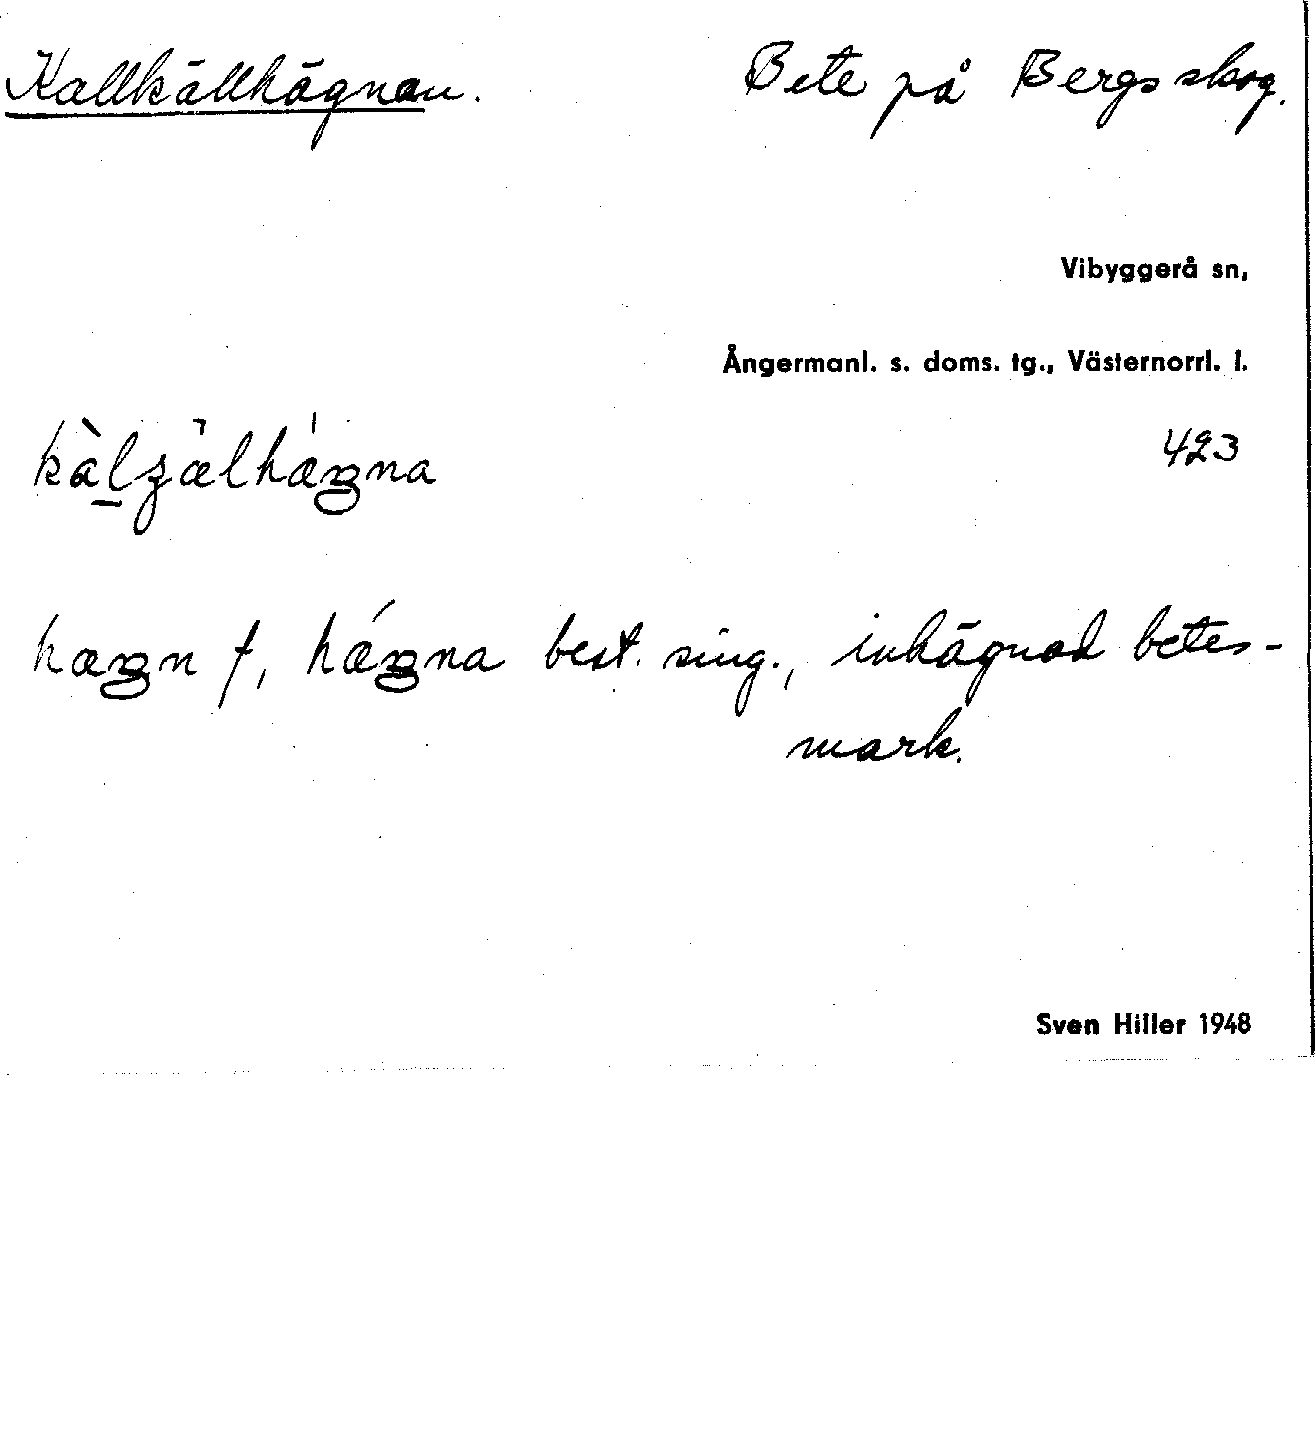 Kallkällhägnan. Bete på Bergs skog.
Vibyggerå sn,
Ångermanl. s. doms. tg., Västernorrl. l.
423
hægn f, hǽgna best. sing., inhägnad betes-
mark.
Sven Hiller 1948